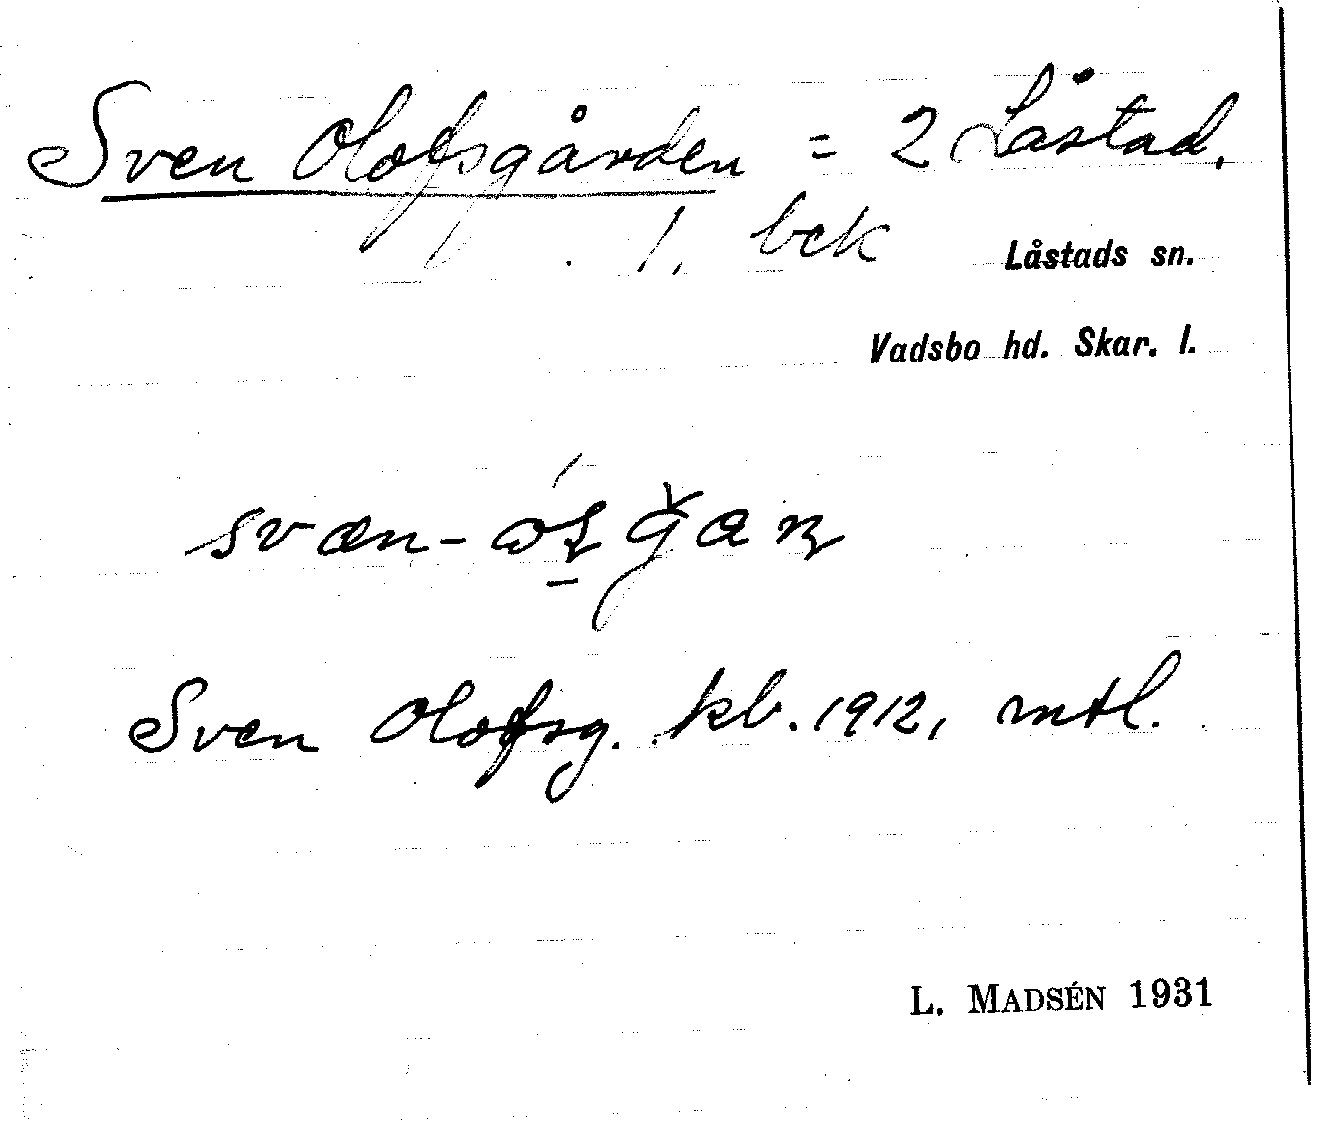 Sven Olofsgården = 2 Låstad.
1. bck
Låstads sn.
Vadsbo hd. Skar. l.
Sven Olofsg. kb. 1912, mtl.
L. MADSÉN 1931